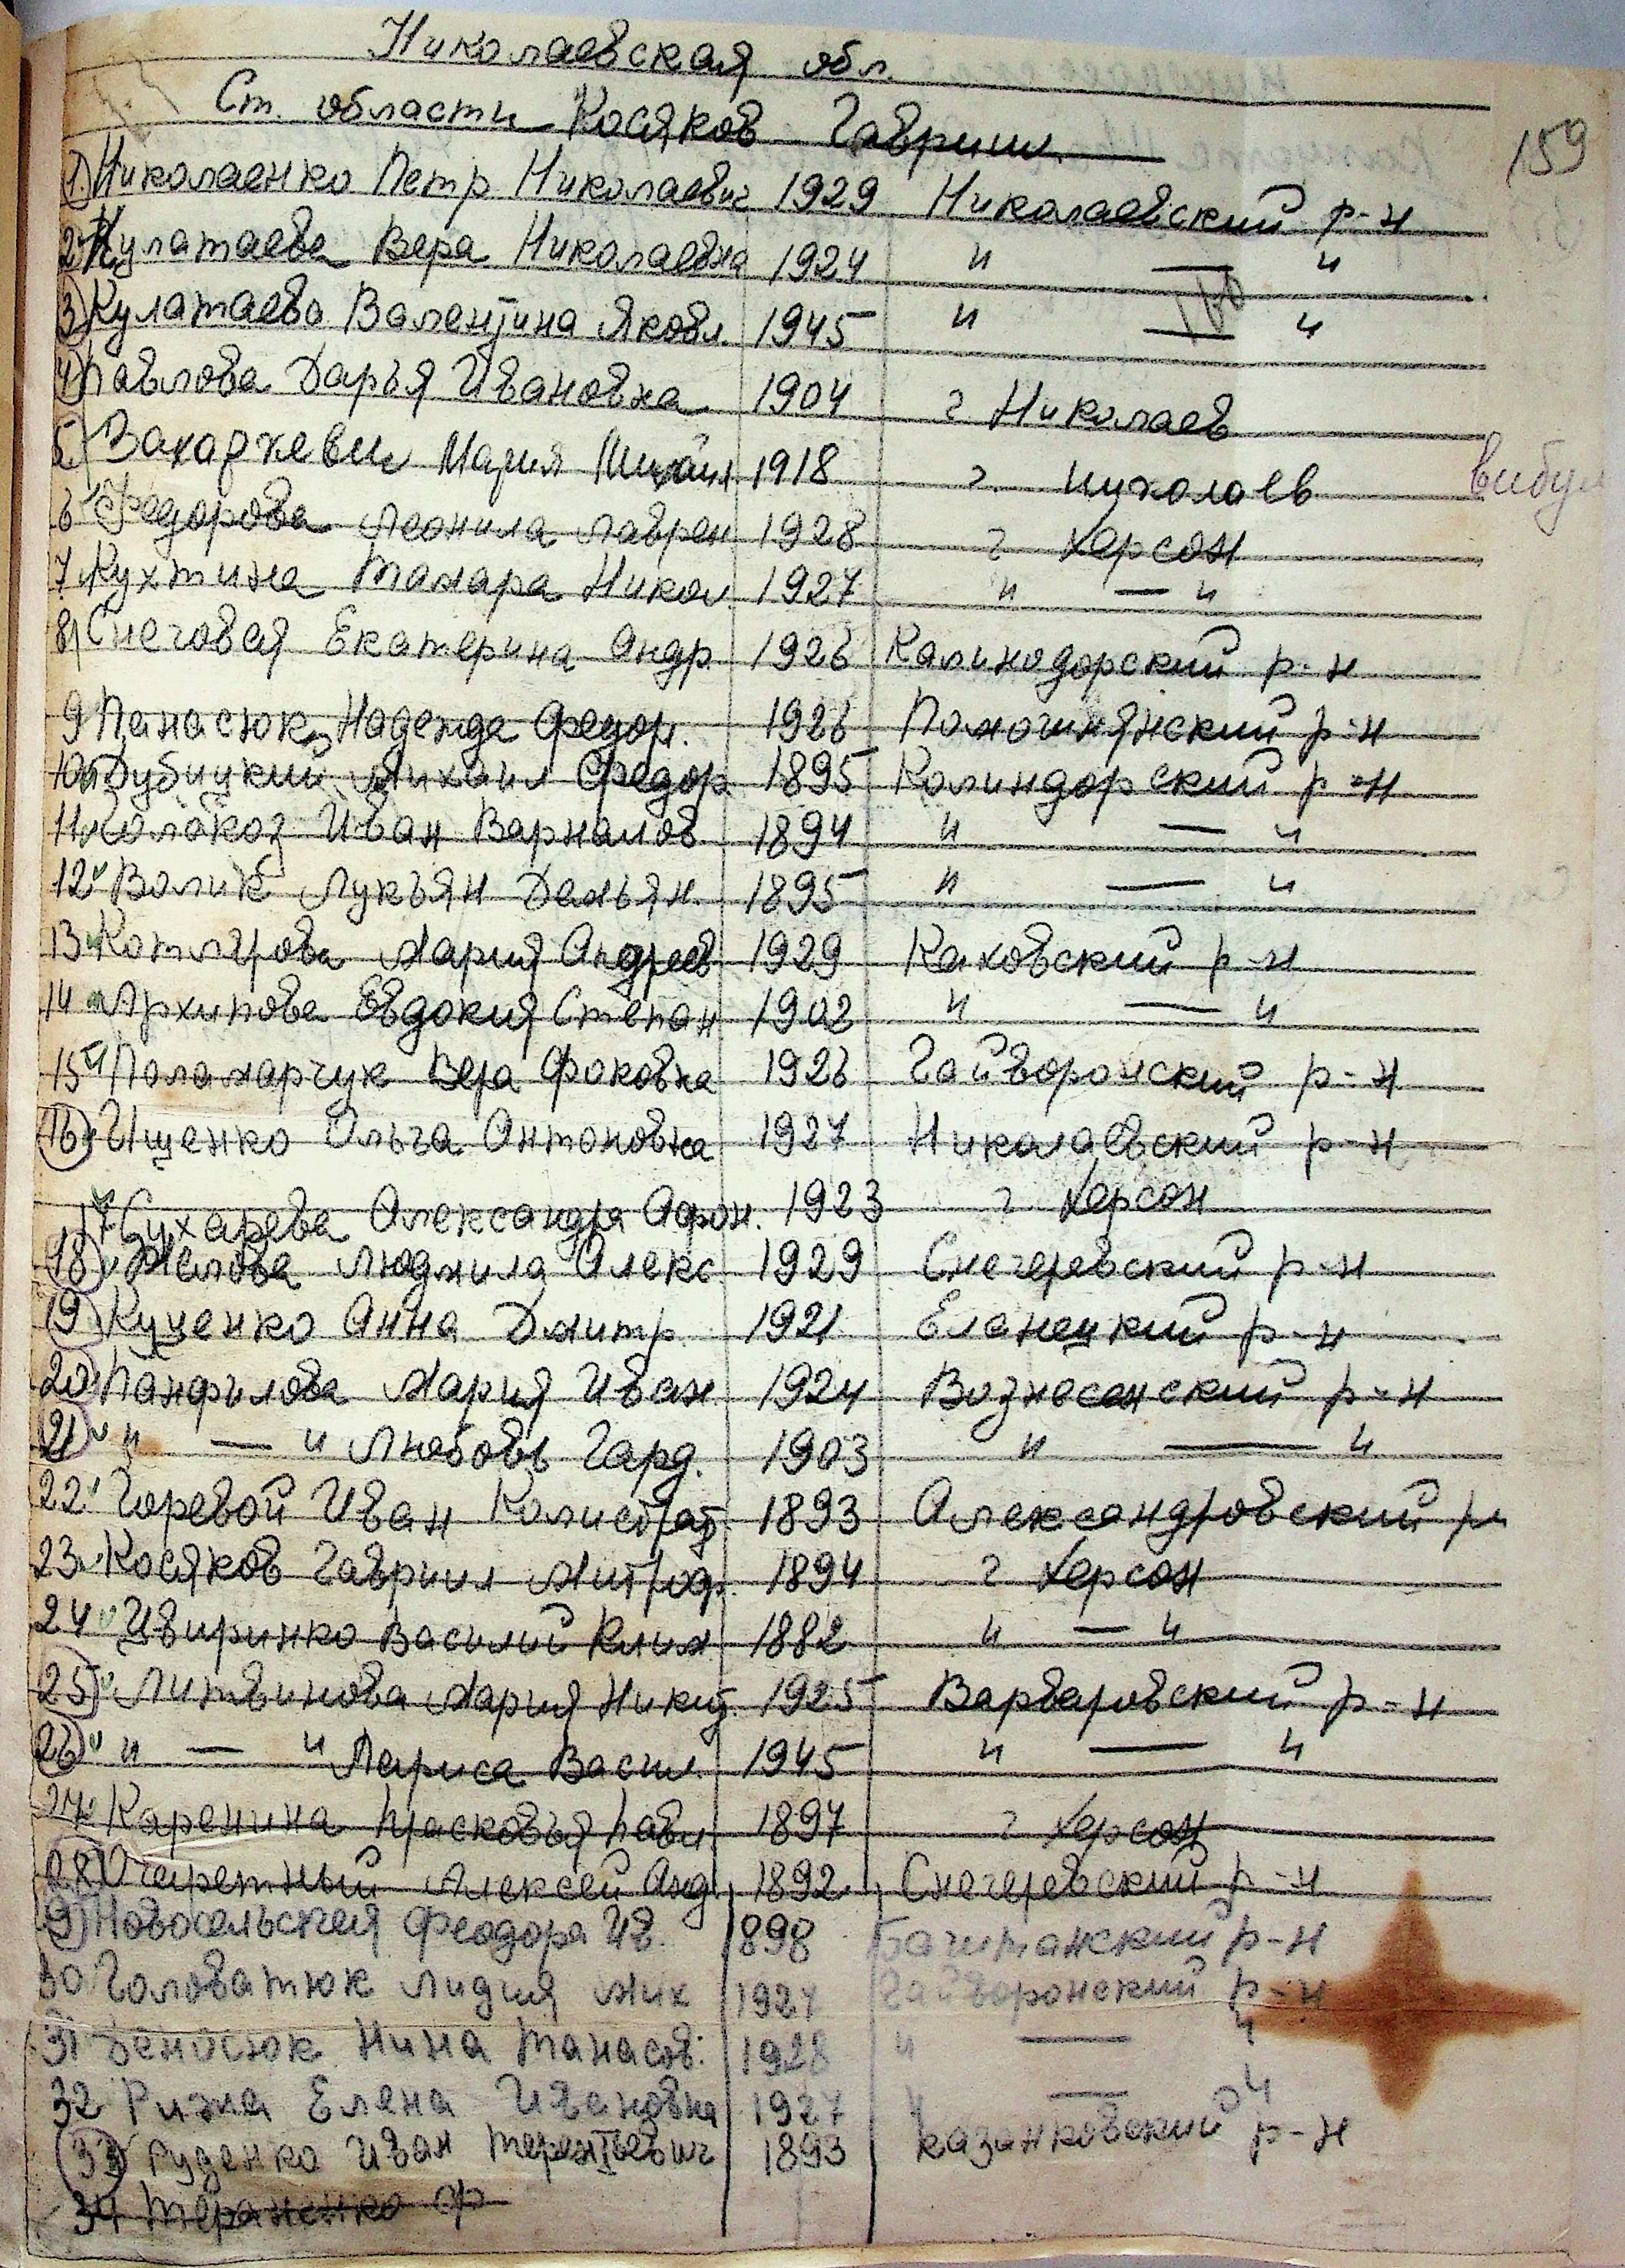 Николаевская обл.
Ст. области Косяков Гавриил
159
1. Николаенко Петр Николаевич 1929 Николаевский р-н
2 Кулатаева Вера Николаевна 1924 " — "
3) Кулатаева Валентина Яковл. 1945 " — "
4) Павлова Дарья Ивановна 1904 г Николаев
5) Захаркевич Мария Михайл. 1918 г. Николаев вибул
6 Федорова Леонила Лаврен 1928 г Херсон
7 Кухтина Тамара Никол 1927 " — "
8) Снеговая Екатерина Андр 1926 Калинодорский р-н
9 Панасюк Надежда Федор. 1926 Помошнянский р-н
10 Дубицкий Михаил Федор 1895 Калиндорский р-н
11 Голобко Иван Варналов 1894 " — "
12 Волик Лукьян Демьян. 1895 " — "
13 Котлярова Мария Андреев 1929 Каховский р-н
14 Архипова Евдокия Степан 1902 " — "
15 Паламарчук Вера Фоковна 1926 Гайворонский р-н
16 Ищенко Ольга Антоновна 1927 Николаевский р-н
17 Сухарева Александра Афон. 1923 г. Херсон
18 Желова Людмила Алекс 1929 Снегиревский р-н
19 Куценко Анна Дмитр. 1921 Еланецкий р-н
20 Панфилова Мария Иван 1924 Вознесенский р-н
21 " — " Любовь Гард. 1903 " — "
22 Горевой Иван Калистрат. 1893 Александровский р-н
23. Косяков Гавриил Митроф. 1894 г Херсон
24 Цвиринко Василий Клим 1882 " — "
25) Литвинова Мария Никит. 1925 Варваровский р-н
26) " — " Лариса Васил. 1945 " — "
27 Каренина Прасковья Павл. 1897 г Херсон
28) Очеретный Алексей Анд. 1892 Снегиревский р-н
9) Новосельская Феодора Ив. 1898 Баштанский р-н
30 Головатюк Лидия Мих 1927 Гайворонский р-н
31 Денисюк Нина Танасов. 1928 " — "
32 Рижа Елена Ивановна 1927 " — "
33 Руденко Иван Терентьевич 1893 Казанковский р-н
34 Тераненко Ф